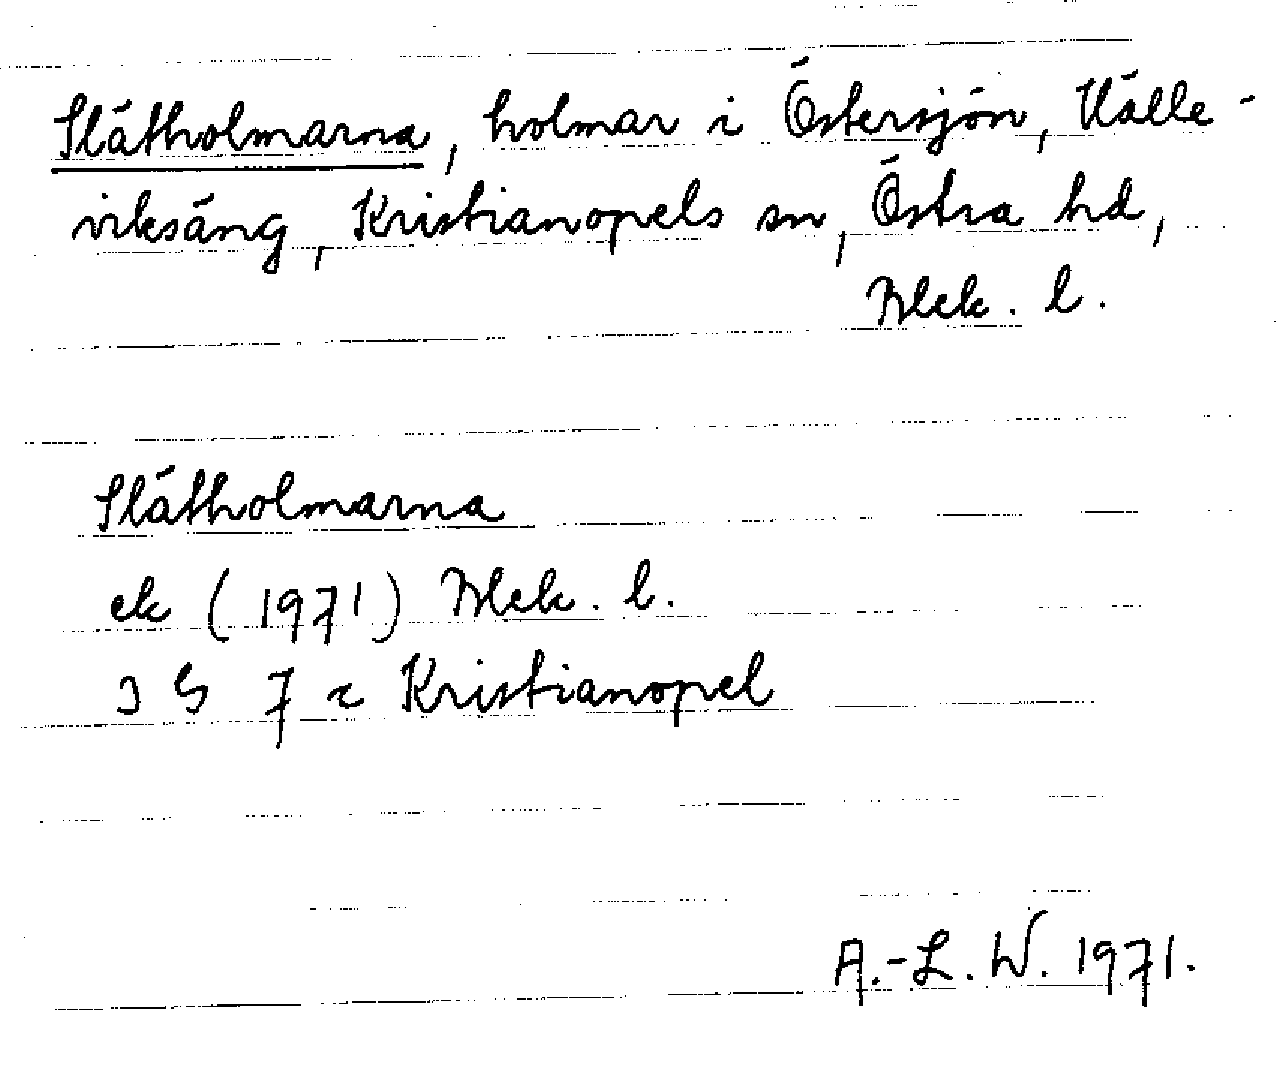 Slätholmarna, holmar i Östersjön, Hälle-
viksäng, Kristianopels sn, Östra hd,
Blek. l.
Slätholmarna
ek (1971) Blek. l.
3 G 7 c Kristianopel
A.-L. W. 1971.